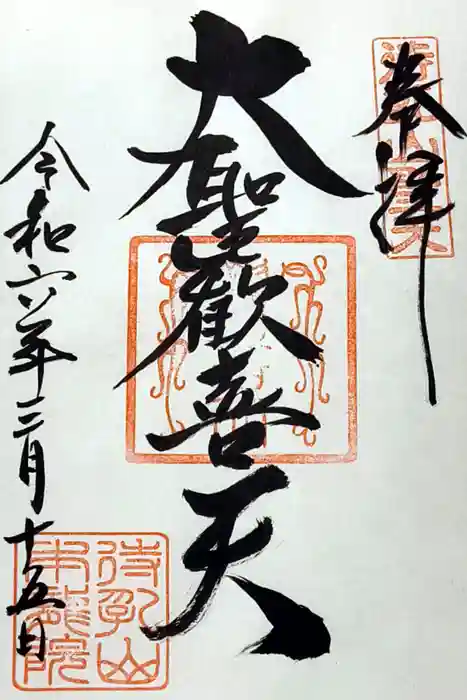 奉拝
大聖歓喜天
令和六年三月十五日
待乳山
本龍院